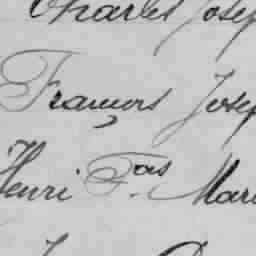 Charles Josep
François Josep
Henri Fçois Mari